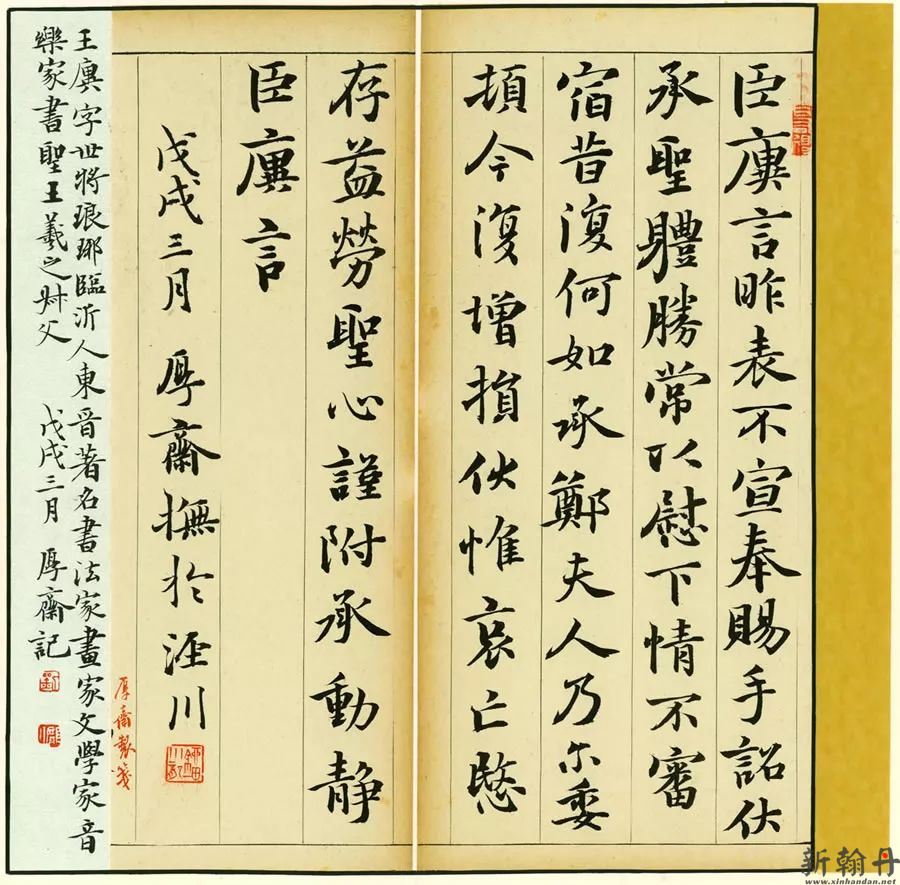 臣廙言昨表不宣奉賜手詔伏
承聖體勝常以慰下情不審
宿昔復何如承鄭夫人乃尔委
頓今復增損伏惟哀亡愍
存益勞聖心謹附承動静
臣廙言
戊戌三月 厚齋撫於涇川
厚齋製箋
王廙字世將琅琊臨沂人東晉著名書法家畫家文學家音
樂家書聖王羲之叔父 戊戌三月 厚齋記
新翰丹
www.xinhandan.net